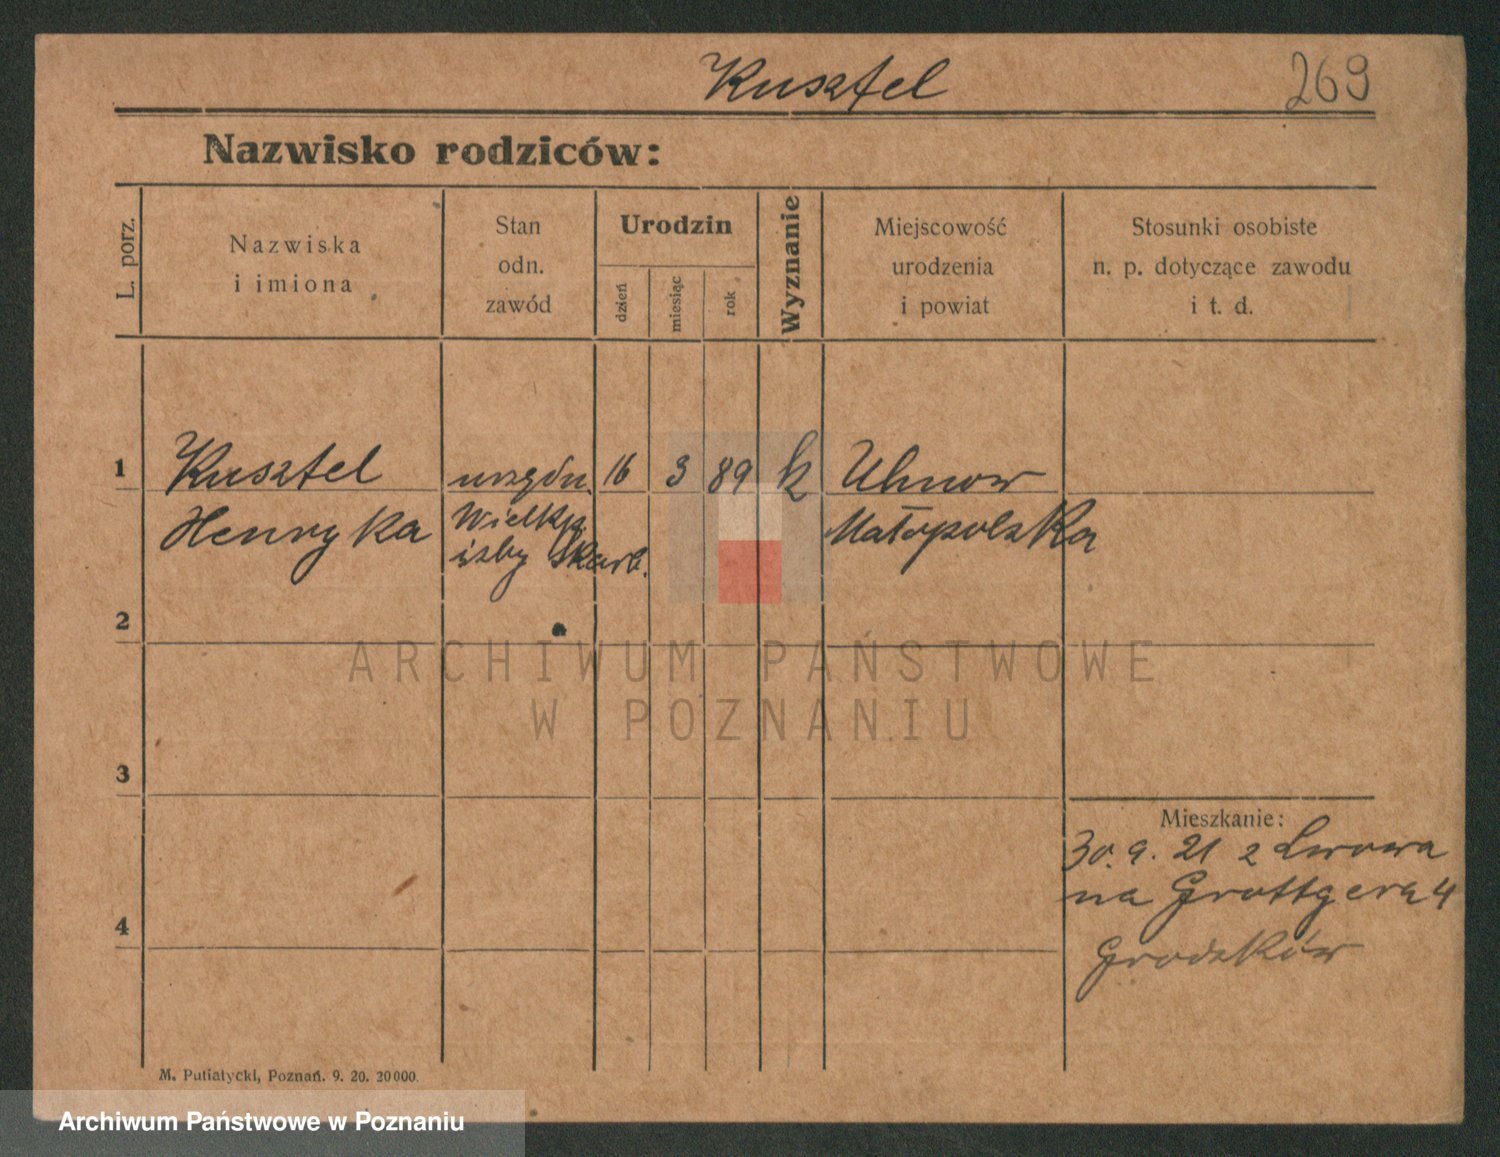 Kusztel 269
Nazwisko rodziców:
L. porz.
Nazwiska
i imiona
Stan
odn.
zawód
Urodzin
dzień
miesiąc
rok
Wyznanie
Miejscowość
urodzenia
i powiat
Stosunki osobiste
n. p. dotyczące zawodu
i t. d.
1 Kusztel urzędn. 16 3 89 k Uhnow
Henryka Wielkp. Małopolska
izby Skarb.
2
ARCHIWUM PAŃSTWOWE
W POZNANIU
3
Mieszkanie:
30.9.21 z Lwowa
na Grottgera 4
4
M. Putiatycki, Poznań. 9. 20. 20000.
Archiwum Państwowe w Poznaniu